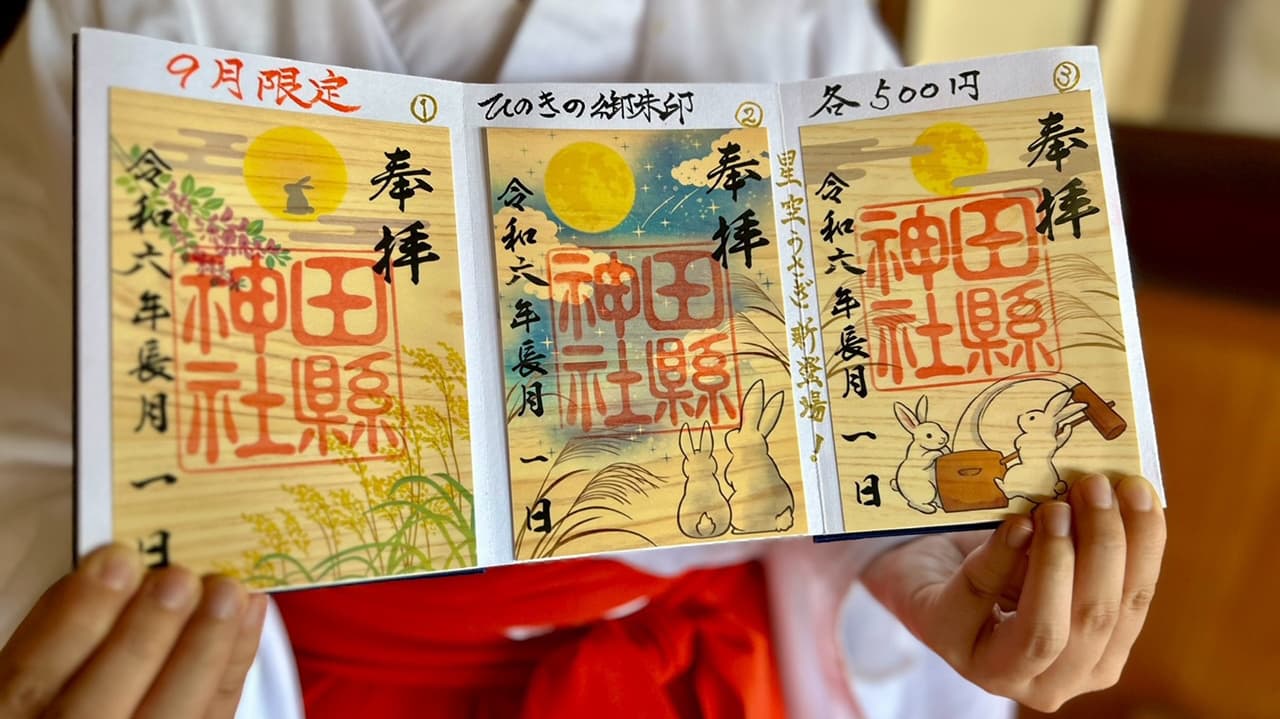 9月限定
①
奉拝
田縣
神社
令和六年長月一日
ひのきの御朱印
②
奉拝
田縣
神社
令和六年長月一日
星空うさぎ新登場！
各500円
③
奉拝
田縣
神社
令和六年長月一日